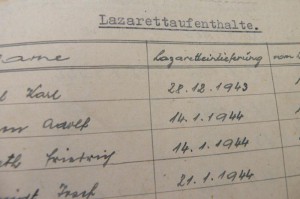 Lazarettaufenthalte.
Name Lazaretteinlieferung
Karl 28.12.1943
Adolf 14.1.1944
Friedrich 14.1.1944
Josef 21.1.1944